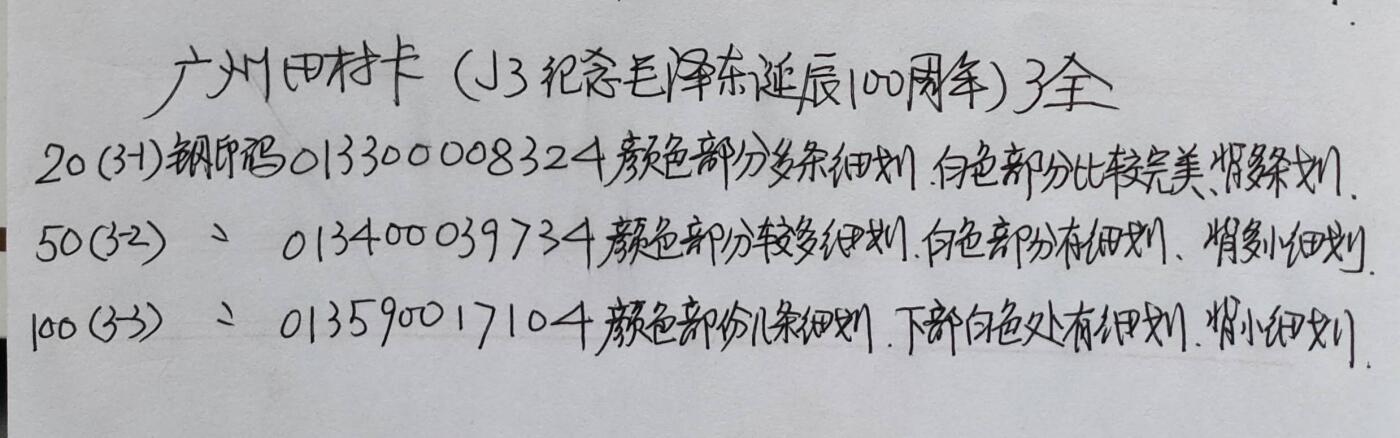 广州田村卡（J3纪念毛泽东诞辰100周年）3全
20（3-1）钢印码013300008324颜色部分多条细划.白色部分比较完美、背多条划.
50（3-2） 〃 013400039734颜色部分较多细划.白色部分有细划、背多小细划.
100（3-3） 〃 013590017104颜色部份几条细划.下部白色处有细划.背小细划.